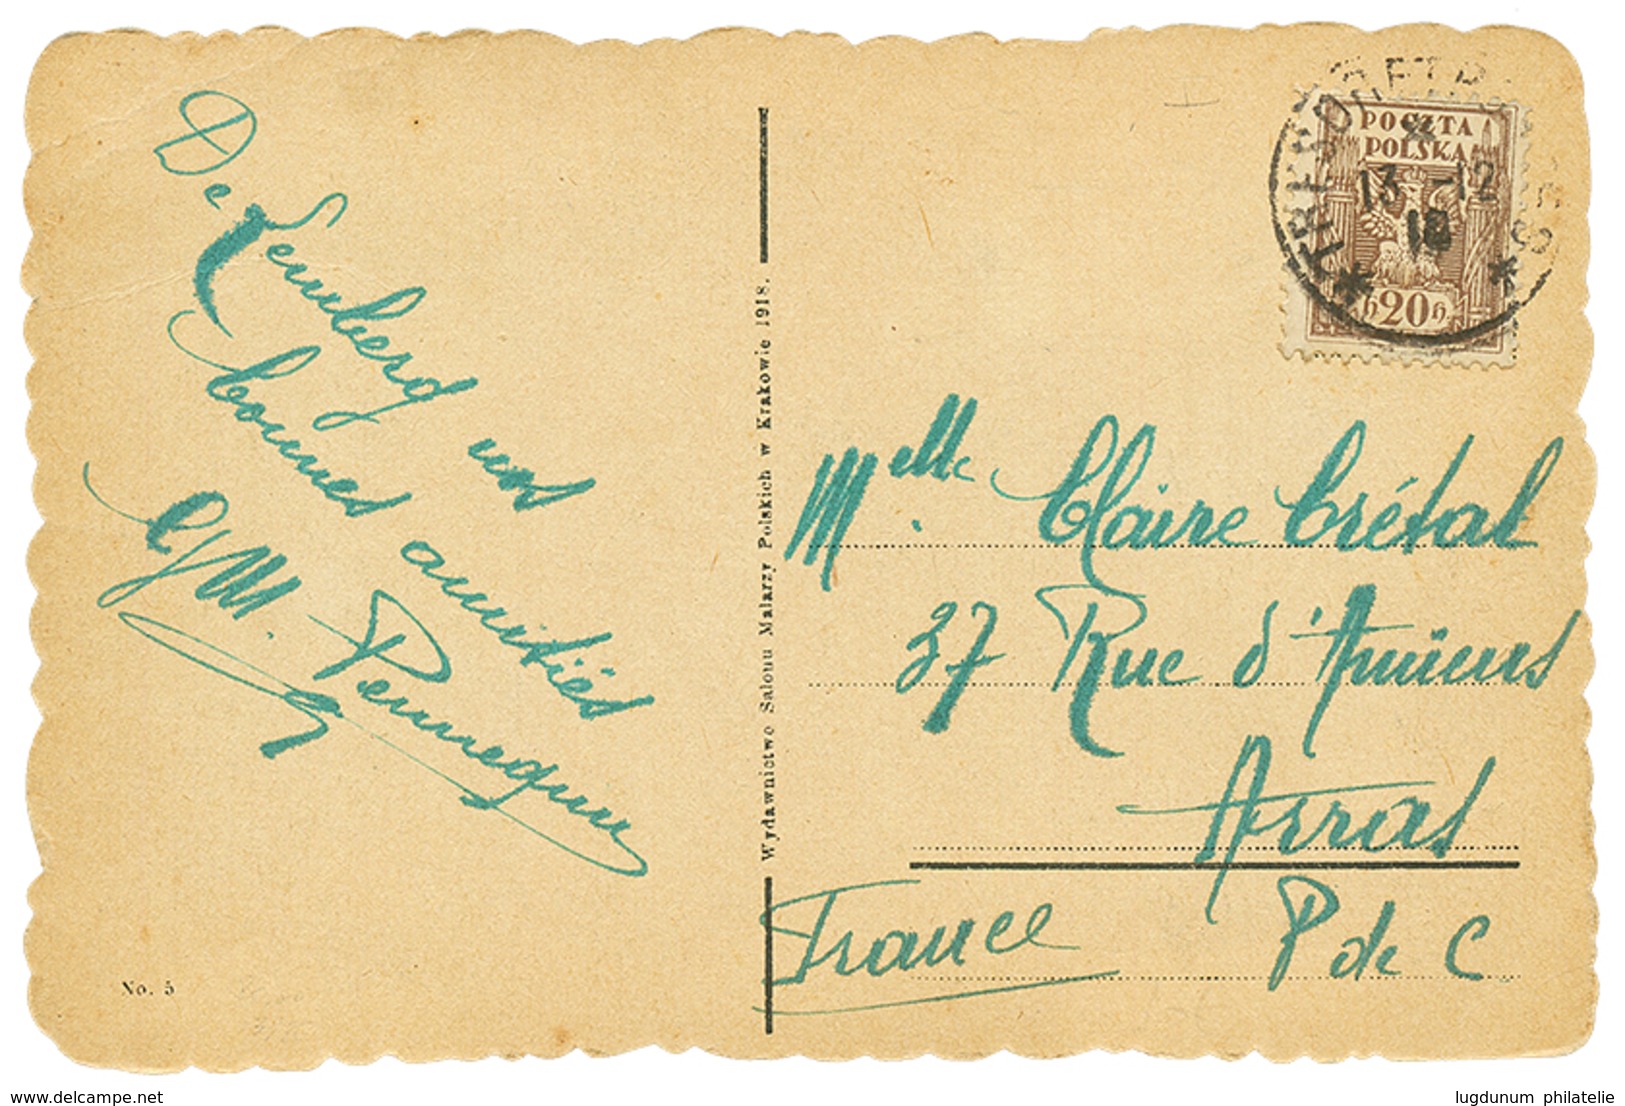 De Lemberg nos
bonnes amitiés
G M. Pennequin
No. 5
Wydawnictwo Salonu Malarzy Polskich w Krakowie 1918.
POCZTA
POLSKA
h 20 h.
13 -12
18
Melle Claire Crétal
37 Rue d'Amiens
Arras
France P de C
www.delcampe.net
lugdunum philatelie